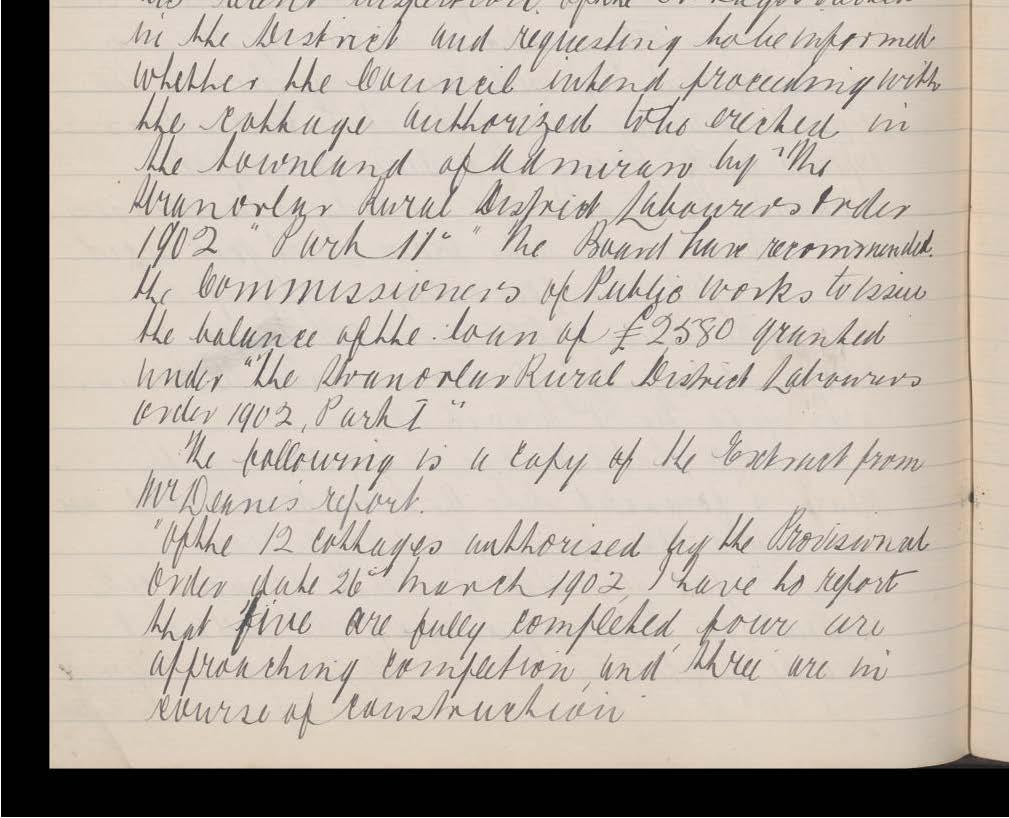 recent inspection of the Cottages
in the District and requesting to be informed
whether the Council intend proceeding with
the cottage authorized to be erected in
the townland of Admiran by "The
Stranorlar Rural District Labourers Order
1902 "Part II" " The Board have recommended
the Commissioners of Public Works to issue
the balance of the loan of £2580 granted
under "The Stranorlar Rural District Labourers
order 1902, Part I"
The following is a copy of the Extract from
Mr Dennis report.
"Of the 12 cottages authorised by the Provisional
Order date 26th March 1902, I have to report
that five are fully completed four are
approaching completion, and three are in
course of construction